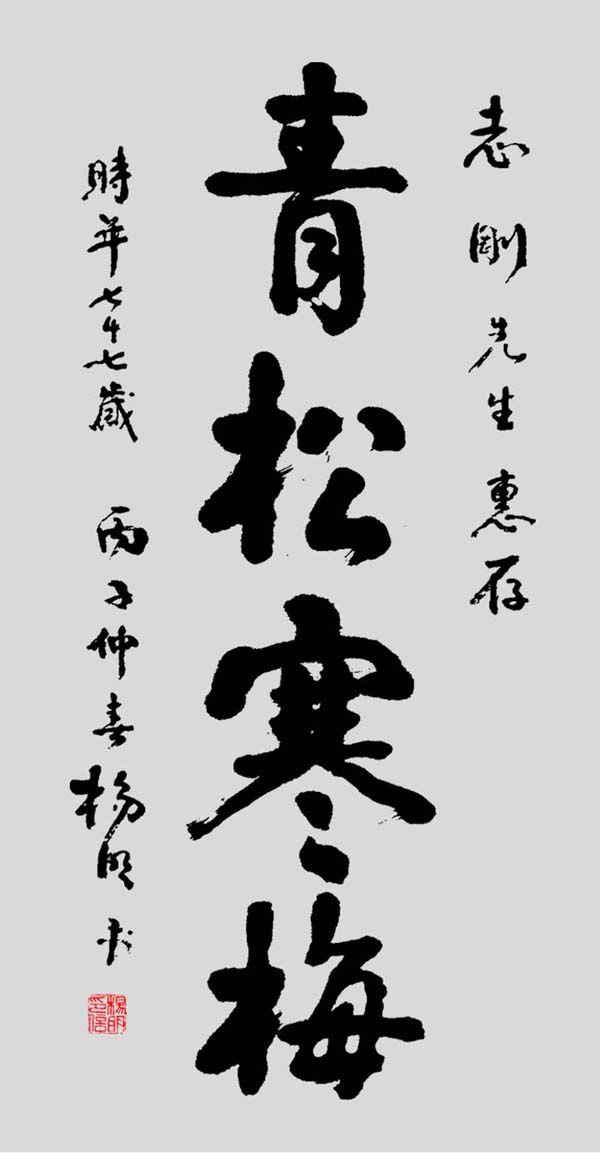 志剛先生惠存
青松寒梅
時年七十七歲 丙子仲春楊明书
楊明印信